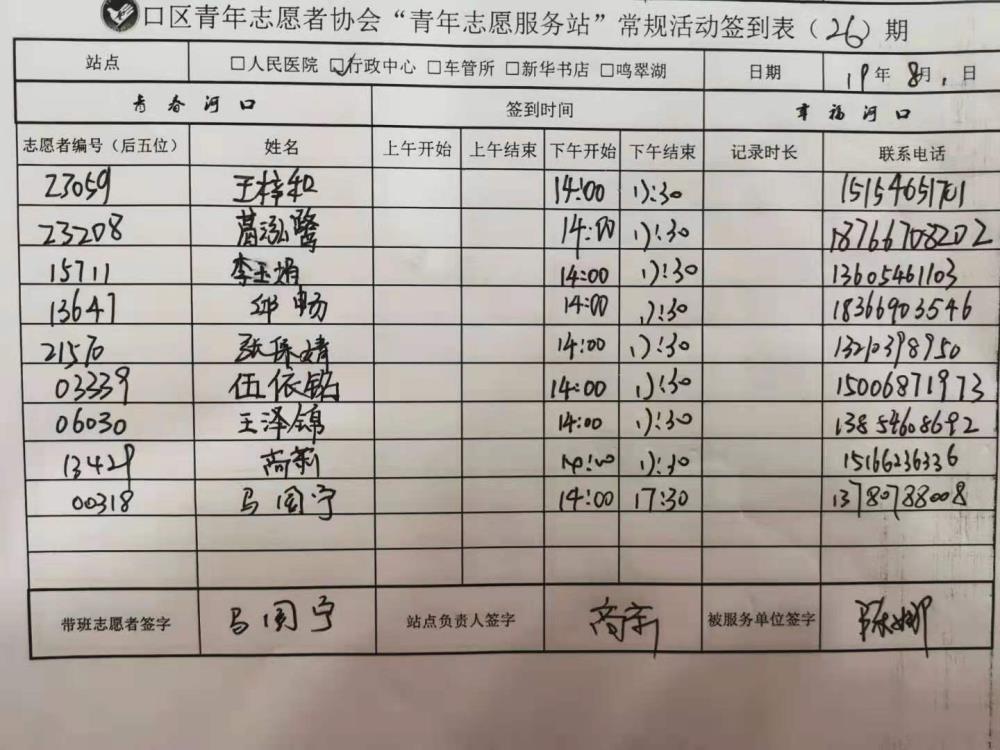 口区青年志愿者协会“青年志愿服务站”常规活动签到表（26）期
站点 □人民医院 ☑行政中心 □车管所 □新华书店 □鸣翠湖 日期 19年 8月 1日
青春河口 签到时间 幸福河口
志愿者编号（后五位） 姓名 上午开始 上午结束 下午开始 下午结束 记录时长 联系电话
23059 王梓和 14:00 17:30 15154651701
23208 葛泓鹭 14:00 17:30 18766708202
15711 李玉娟 14:00 17:30 13605461103
13647 邱畅 14:00 17:30 18366903546
21570 张保婧 14:00 17:30 13210398950
03339 伍依铭 14:00 17:30 15006871973
06030 王泽锦 14:00 17:30 13854608692
13429 尚新 14:00 17:30 15166236336
00318 马国宁 14:00 17:30 13780788008
带班志愿者签字 马国宁 站点负责人签字 被服务单位签字 陈娜